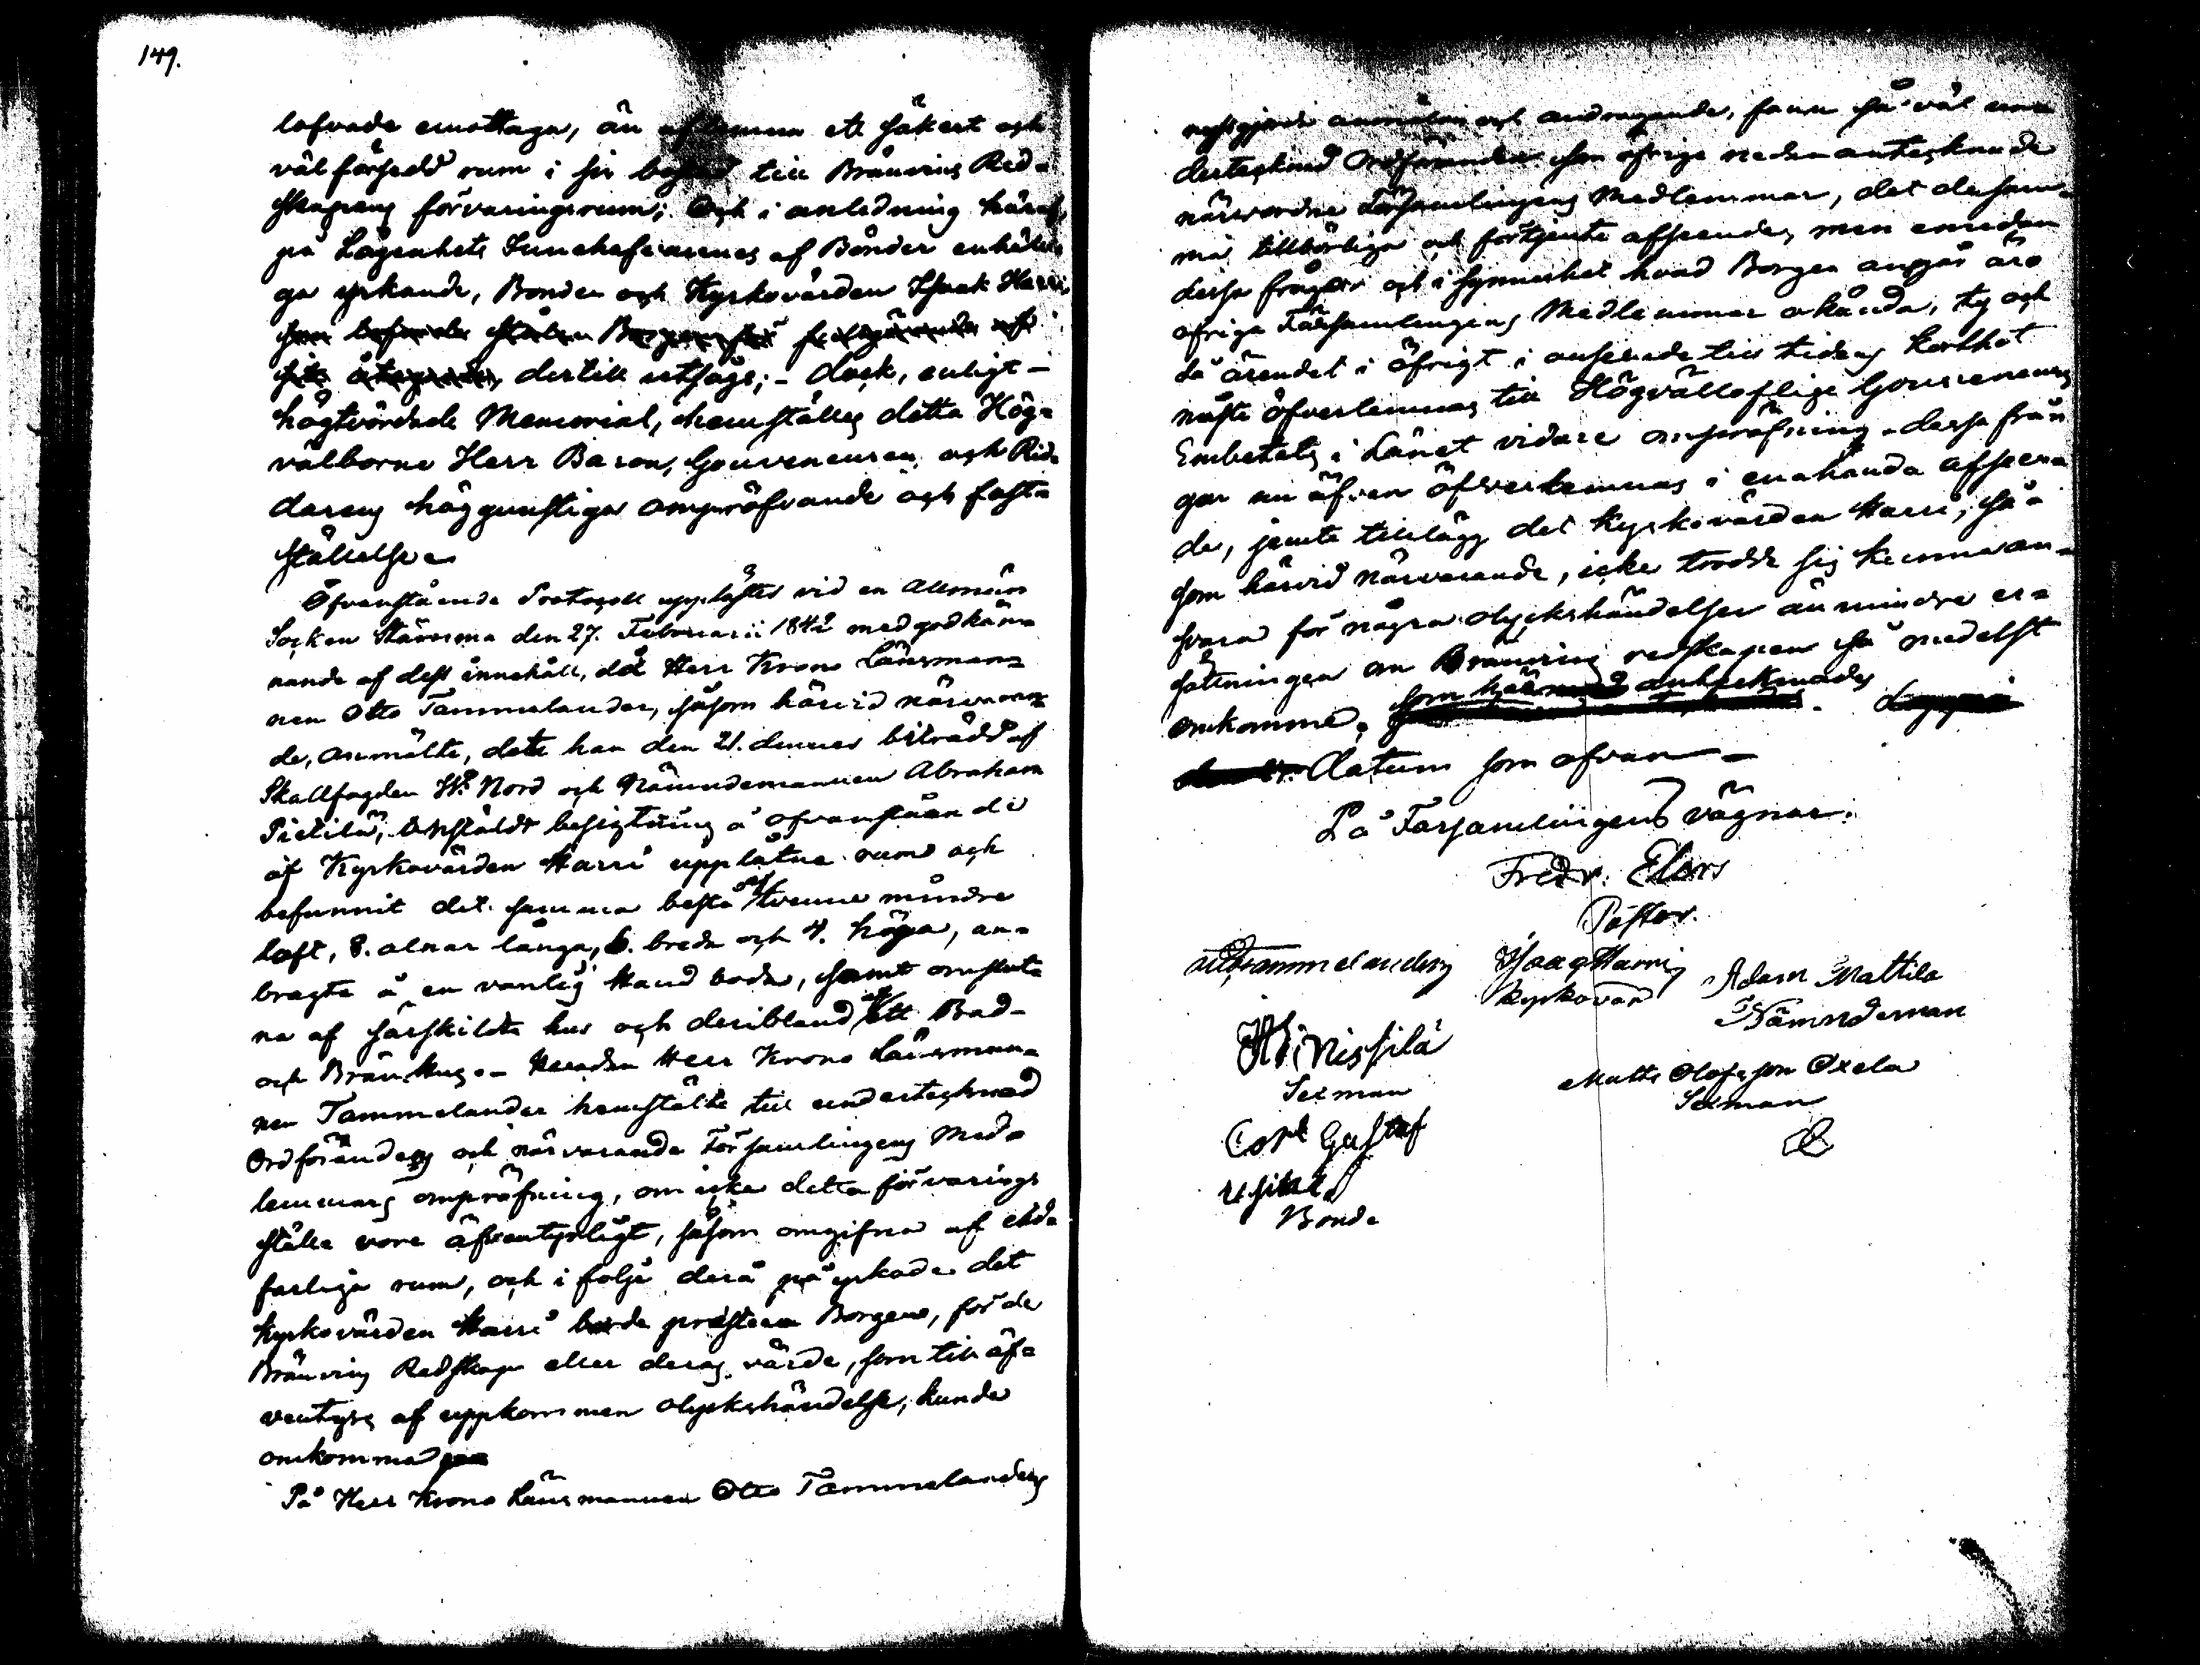 149.
lofvade emottaga, än aflemna ett säkert och
väl försedd rum i sin bostad till Bränvins Red-
skapens förvaringsrum; Och i anledning häraf,
på Lägenhets Innehafvarnes af Bönder enhälli-
ga yrkande, Bonden och Kyrkovärden Isaak Harri
dertill utsågs; - dock, enligt -
högtvördade Memorial, hemställes detta Hög-
välborne Herr Baron, Gouverneuren och Rid-
darens höggunstiga ompröfvande och fast-
ställelse -
Ofvanstående Protocoll upplästes vid en Allmän
Socken Stämma den 27. Februarii 1842 med godkän-
nande af dess innehåll, då Herr Krono Länsman-
nen Otto Tammelander, såsom härvid närvaran-
de, anmälte, det han den 21. dennes biträdd af
Skallfogden Nord och Nämndemannen Abraham
Pietilä, anstäldt besigtning å ofvanstående
af Kyrkovärden Harri upplåtne rum och
befunnit det samma bestå af tvenne mindre
loft, 8. alnar långa, 6. breda och 4. höga, an-
bragte å en vanlig Hand boda, samt omslut-
na af särskildta hus och deribland ett Bad-
och Brän Hus. - Hvardan Herr Krono Länsman-
nen Tammelander hemstälte till undertecknad
Ordförandes och närvarande Församlingens Med-
lemmars ompröfning, om icke detta förvarings
ställe vore äfventyrligt, såsom omgifna af eld-
farliga rum, och i följe derå påyrkade det
Kyrkovärden Harri borde prestera Borgen, för de
Bränvins Redskap eller deras värde, som till äf-
ventyrs af uppkommen olyckshändelse, kunde
omkomma
På Herr Krono Länsmannen Otto Tammelanders
nyssgjorde anmälan och andragande, fann så väl un-
dertecknad Ordförande som öfrige nedanantecknade
närvarande Församlingens Medlemmar, det densam-
ma tillbörliga och förtjente afseende, men emedan
dessa frågor och i synnerhet hvad Borgen angår äro
öfriga Församlingens Medlemmar okända, ty och
då ärendet i öfrigt i anseende till tidens korthet
måste öfverlemnas till Högvällofliga Gouverneurs
Embetets i Länet vidare ompröfning, dessa frå-
gor nu äfven öfverlemnas i enahanda afseen-
de, jemte tillägg det Kyrkovärden Harri, så-
som härvid närvarande, icke trodde sig kunna an-
svara för några olyckshändelser än mindre er-
sättningen om Bränvins redskapen så medelst
omkomme, som härmed antecknades
datum som ofvan -
På Församlingens vägnar:
Fredr. Elers
Pastor.
Otto Tammelander
Isaac Harri
Kyrkovärd
Adam Mattila
Nämndeman
Sexman
Matts Olofsson Oxela
Sexman
Carl Gustaf
Bonde